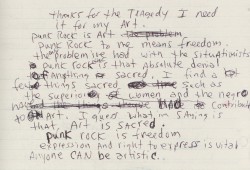 thanks for the Tragedy I need
it for my Art.
punk Rock is Art
punk Rock to me means freedom.
the problem had with the Situationists
punk Rock is that absolute denial
of anything sacred. I find a
few things sacred such as
the superiority women and the negro
contribute
to Art. I guess what im saying is
that Art is SACred.
punk rock is freedom
expression and right to express is vital
Anyone CAN be artistic.